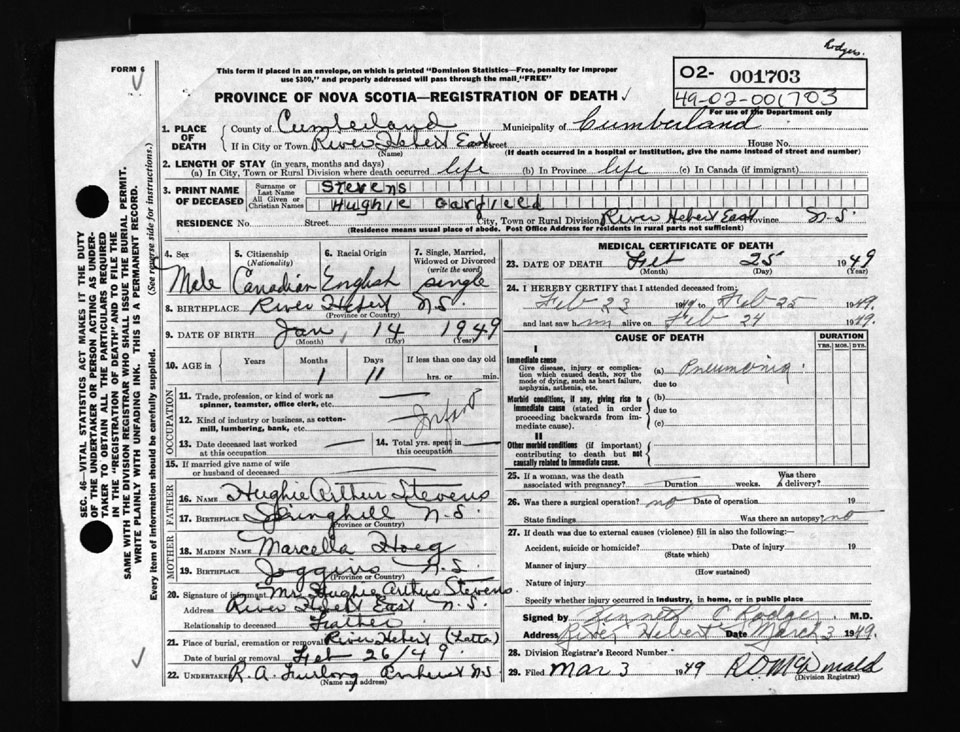 Rodgers.
FORM 6
This form if placed in an envelope, on which is printed "Dominion Statistics—Free, penalty for improper
use $300," and properly addressed will pass through the mail, "FREE"
02- 001703
49-02-001703
For use of the Department only
PROVINCE OF NOVA SCOTIA—REGISTRATION OF DEATH
1. PLACE OF DEATH County of Cumberland Municipality of Cumberland
If in City or Town River Hebert East Street House No.
(Name) (If death occurred in a hospital or institution, give the name instead of street and number)
2. LENGTH OF STAY (in years, months and days)
(a) In City, Town or Rural Division where death occurred life (b) In Province life (c) In Canada (if immigrant)
3. PRINT NAME OF DECEASED Surname or Last Name Stevens
All Given or Christian Names Hughie Garfield
RESIDENCE No. Street City, Town or Rural Division River Hebert East Province N.S.
(Residence means usual place of abode. Post Office Address for residents in rural parts not sufficient)
4. Sex 5. Citizenship (Nationality) 6. Racial Origin 7. Single, Married, Widowed or Divorced (write the word)
Male Canadian English single
8. BIRTHPLACE River Hebert N.S.
(Province or Country)
9. DATE OF BIRTH Jan 14 1949
(Month) (Day) (Year)
10. AGE in Years Months Days If less than one day old
1 11 hrs. or min.
OCCUPATION
11. Trade, profession, or kind of work as spinner, teamster, office clerk, etc.
12. Kind of industry or business, as cotton-mill, lumbering, bank, etc. Infant
13. Date deceased last worked at this occupation 14. Total yrs. spent in this occupation
15. If married give name of wife or husband of deceased
FATHER
16. NAME Hughie Arthur Stevens
17. BIRTHPLACE Springhill N.S.
(Province or Country)
MOTHER
18. MAIDEN NAME Marcella Hoeg
19. BIRTHPLACE Joggins N.S.
(Province or Country)
20. Signature of informant Mr. Hughie Arthur Stevens
Address River Hebert East N.S.
Relationship to deceased Father
21. Place of burial, cremation or removal River Hebert
Date of burial or removal Feb 26/49
22. UNDERTAKER R. A. Furlong Amherst N.S.
(Name and address)
MEDICAL CERTIFICATE OF DEATH
23. DATE OF DEATH Feb 25 1949
(Month) (Day) (Year)
24. I HEREBY CERTIFY that I attended deceased from:
Feb 23 1949 to Feb 25 1949.
and last saw him alive on Feb 24 1949.
CAUSE OF DEATH DURATION
YRS. MOS. DYS.
I
Immediate cause
Give disease, injury or complication which caused death, NOT the mode of dying, such as heart failure, asphyxia, asthenia, etc.
(a) Pneumonia
due to
Morbid conditions, if any, giving rise to immediate cause (stated in order proceeding backwards from immediate cause).
(b)
due to
(c)
II
Other morbid conditions (if important) contributing to death but not causally related to immediate cause.
25. If a woman, was the death associated with pregnancy? Duration weeks. Was there a delivery?
26. Was there a surgical operation? no Date of operation 19
State findings Was there an autopsy? no
27. If death was due to external causes (violence) fill in also the following:
Accident, suicide or homicide? Date of injury 19
(State which)
Manner of injury
(How sustained)
Nature of injury
Specify whether injury occurred in industry, in home, or in public place
Signed by Kenneth C Rodger M.D.
Address River Hebert Date March 3 1949.
28. Division Registrar's Record Number
29. Filed Mar 3 1949 R D McDonald
(Division Registrar)
SEC. 46—VITAL STATISTICS ACT MAKES IT THE DUTY
OF THE UNDERTAKER OR PERSON ACTING AS UNDER-
TAKER TO OBTAIN ALL THE PARTICULARS REQUIRED
IN THE "REGISTRATION OF DEATH" AND TO FILE THE
SAME WITH THE DIVISION REGISTRAR WHO SHALL ISSUE THE BURIAL PERMIT.
WRITE PLAINLY WITH UNFADING INK. THIS IS A PERMANENT RECORD.
Every item of information should be carefully supplied. (See reverse side for instructions.)